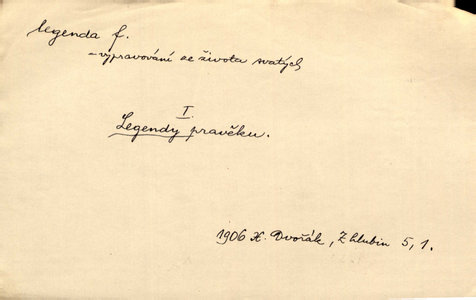 legenda f.
– vypravování ze života svatých
I.
Legendy pravěku.
1906 X. Dvořák, Z hlubin 5, 1.